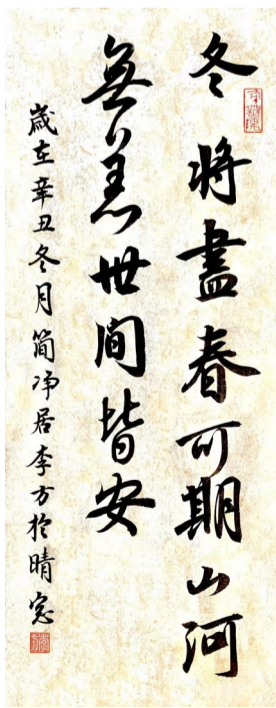 冬将盡春可期山河
無恙世間皆安
歲在辛丑冬月简净居李方於晴窓